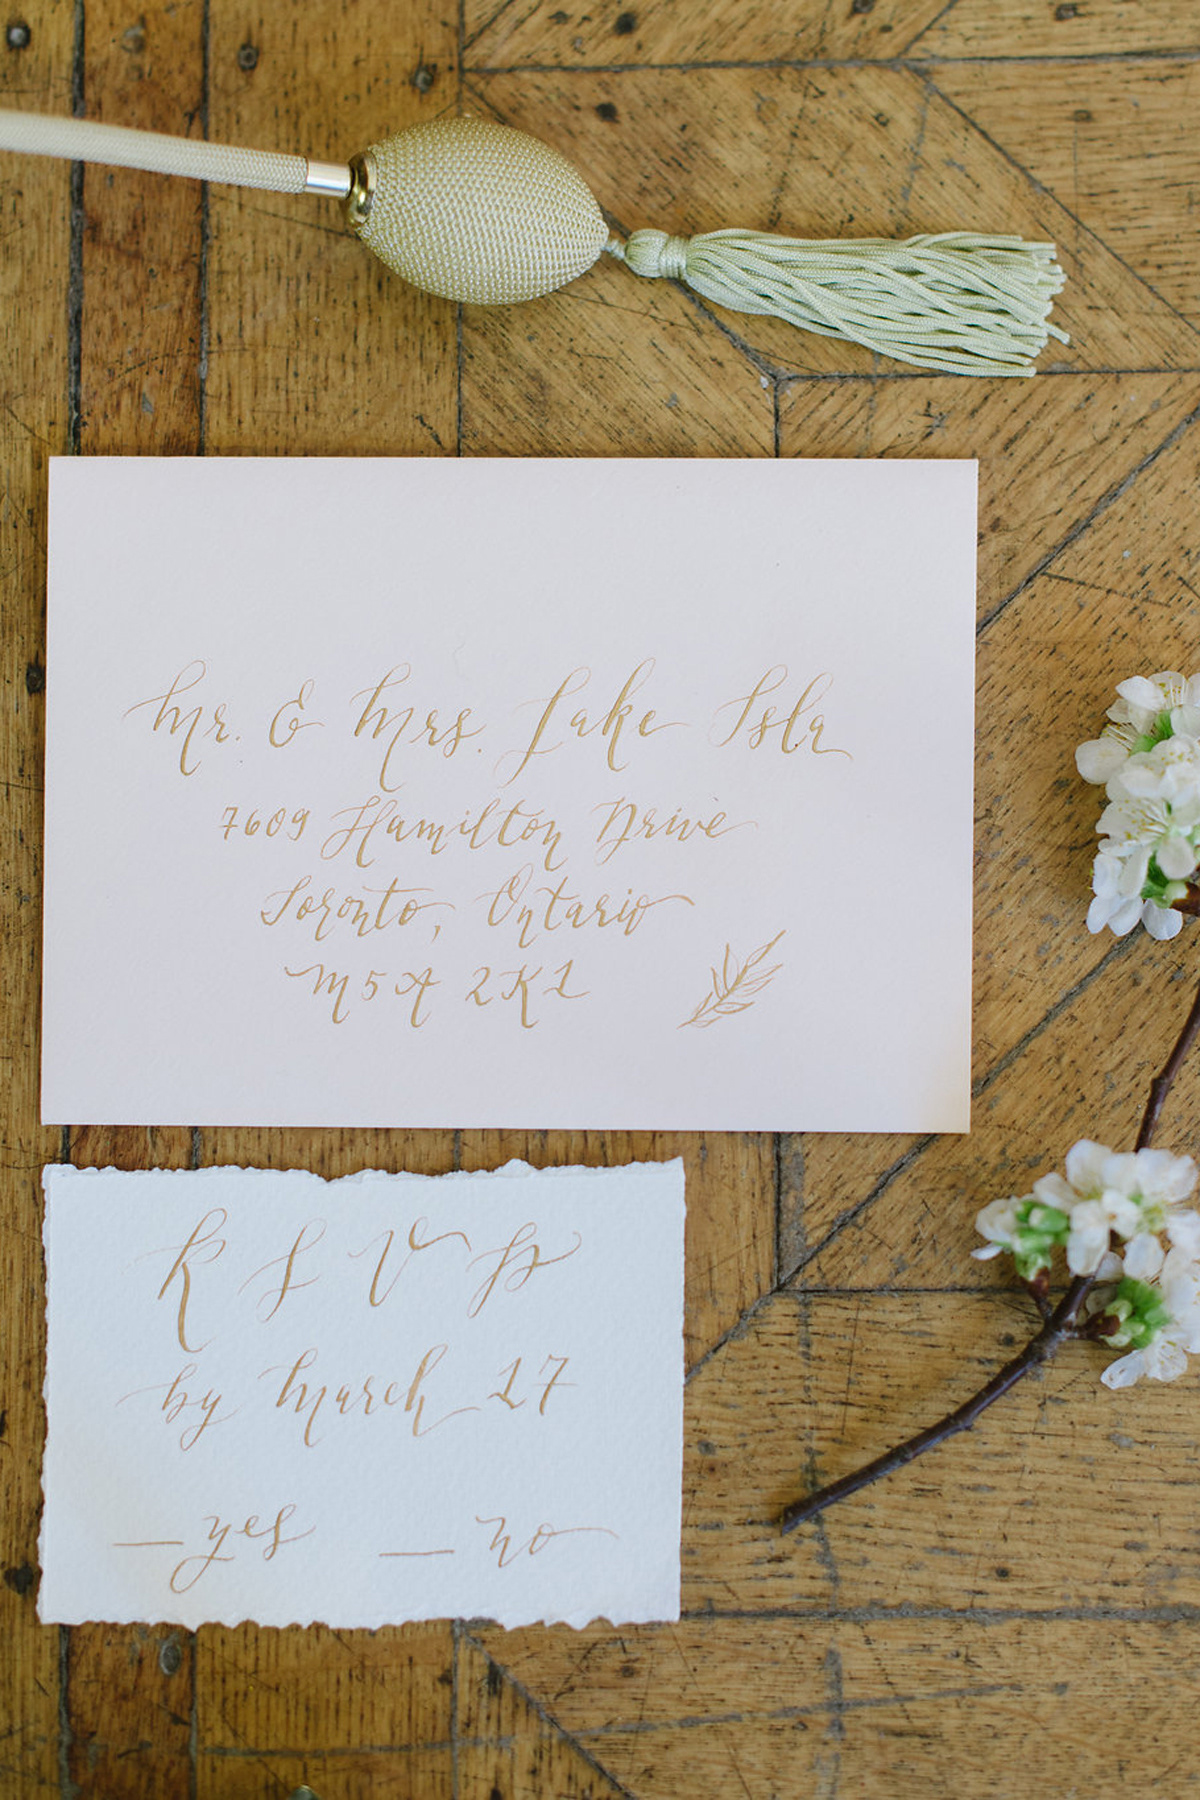 Mr. & Mrs. Jake Isla
7609 Hamilton Drive
Toronto, Ontario
M5A 2K1
R S V P
by March 17
_ yes _ no